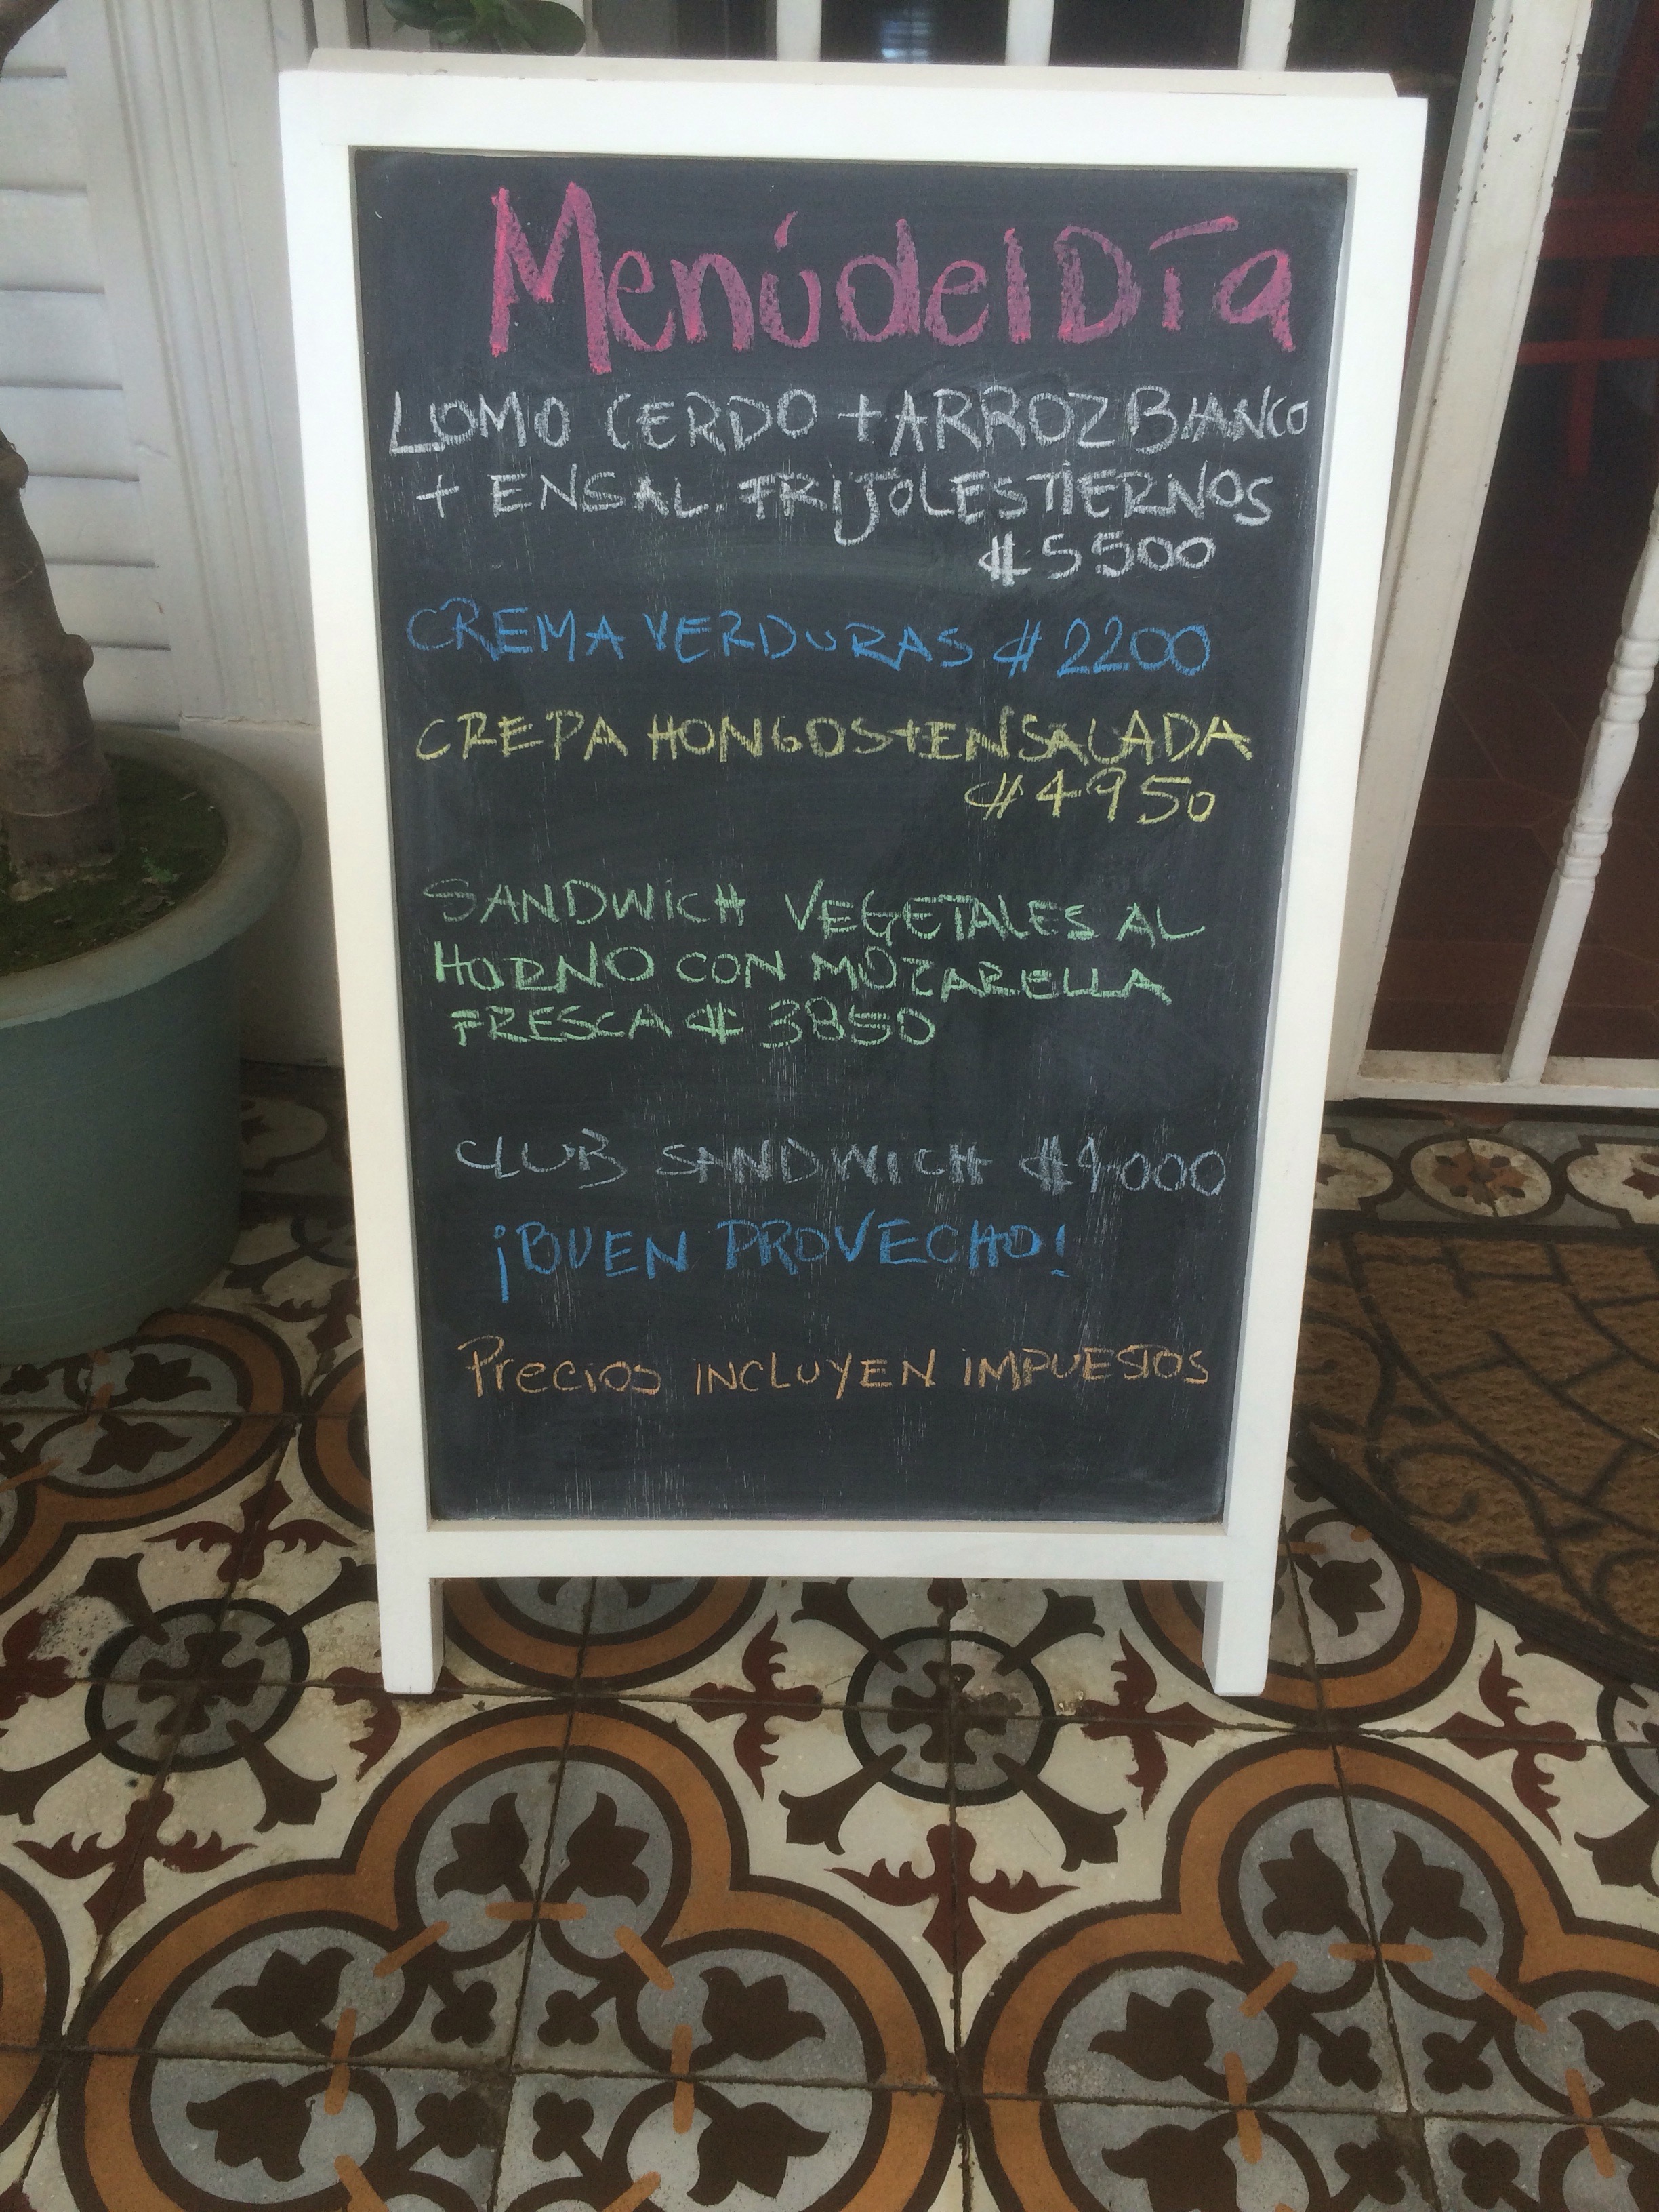 Menú del Día
LOMO CERDO + ARROZ BLANCO
+ ENSAL. FRIJOLES TIERNOS
₡5500
CREMA VERDURAS ₡2200
CREPA HONGOS + ENSALADA
₡4950
SANDWICH VEGETALES AL
HORNO CON MOZARELLA
FRESCA ₡3850
CLUB SANDWICH ₡4000
¡BUEN PROVECHO!
Precios INCLUYEN IMPUESTOS